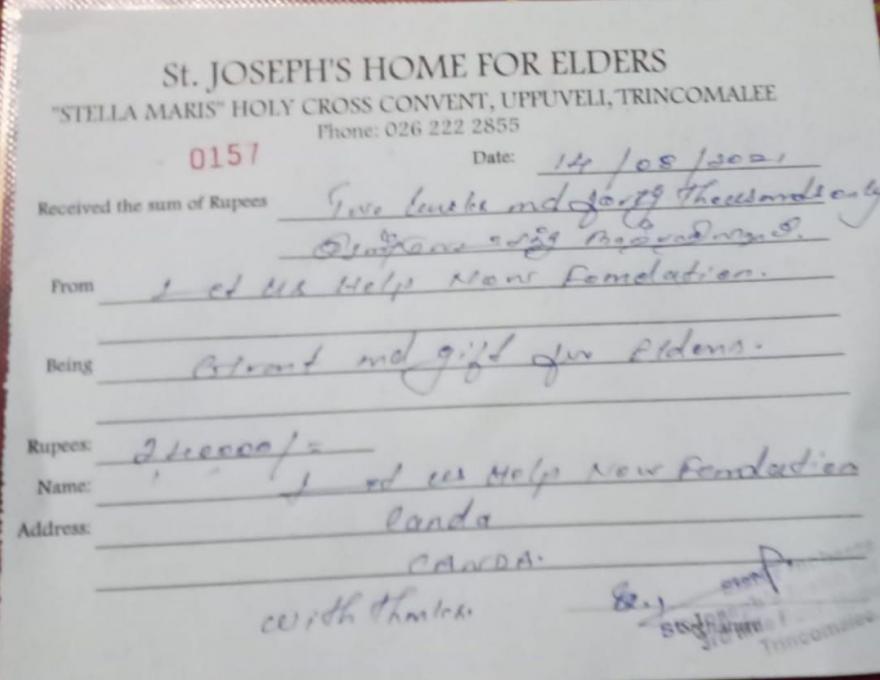 St. JOSEPH'S HOME FOR ELDERS
"STELLA MARIS" HOLY CROSS CONVENT, UPPUVELI, TRINCOMALEE
Phone: 026 222 2855
0157 Date: 14/08/2021
Received the sum of Rupees Two and forty thousands only
From Let us Help Now
Being and gift for Elders.
Rupees: 240000/=
Name: Let us Help Now
Address: Canda
CANDA.
with thanks.
Trincomalee